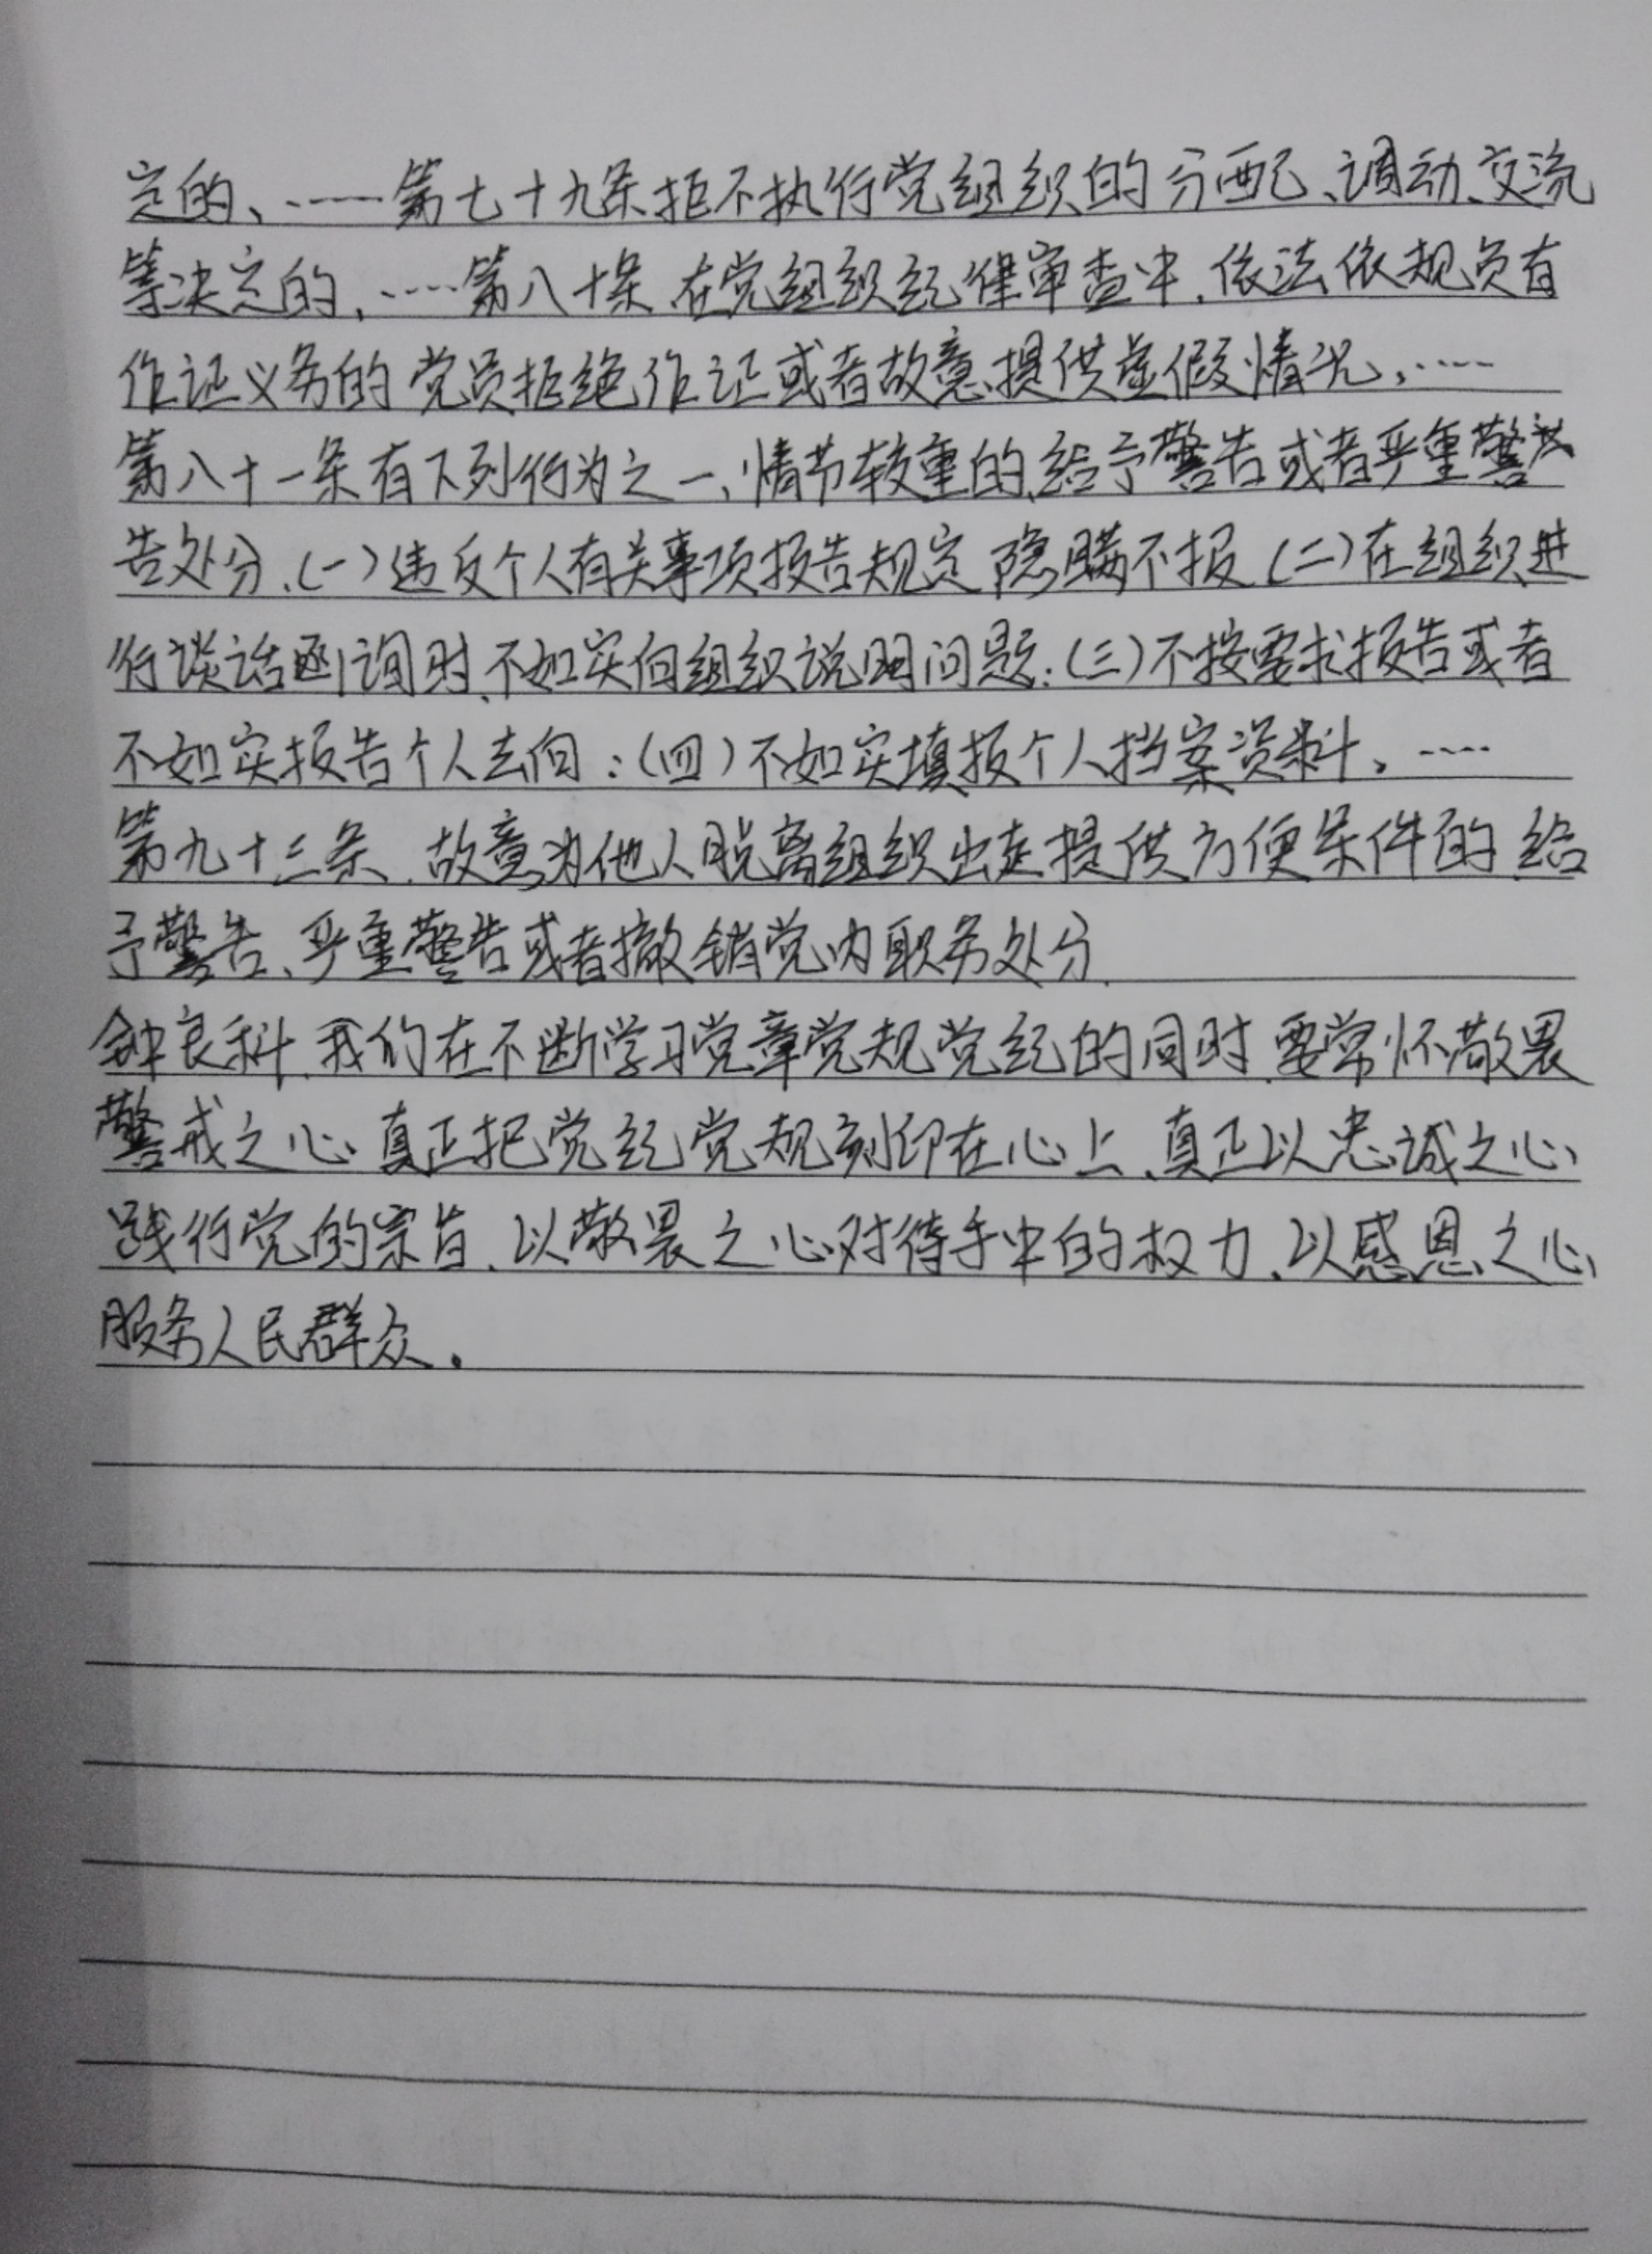 定的、……第七十九条拒不执行党组织的分配、调动、交流
等决定的,……第八十条 在党组织纪律审查中,依法依规负有
作证义务的党员拒绝作证或者故意提供虚假情况,……
第八十一条有下列行为之一、情节较重的,给予警告或者严重警
告处分、(一)违反个人有关事项报告规定 隐瞒不报 (二)在组织进
行谈话函询时、不如实向组织说明问题;(三)不按要求报告或者
不如实报告个人去向;(四)不如实填报个人档案资料、……
第九十三条 .故意为他人脱离组织出走提供方便条件的 给
予警告、严重警告或者撤销党内职务处分.
钟良科.我们在不断学习党章党规党纪的同时.要常怀敬畏
警戒之心 真正把党纪党规刻印在心上、真正以忠诚之心
践行党的宗旨、以敬畏之心对待手中的权力、以感恩之心
服务人民群众.